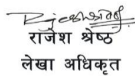 राजेश श्रेष्ठ
लेखा अधिकृत